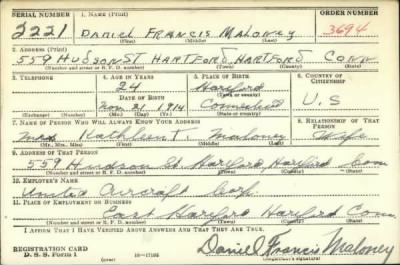 SERIAL NUMBER 1. NAME (Print) ORDER NUMBER
2221 DANIEL FRANCIS MALONEY 3694
(First) (Middle) (Last)
2. ADDRESS (Print)
559 HUDSON ST HARTFORD, HARTFORD CONN
(Number and street or R. F. D. number) (Town) (County) (State)
3. TELEPHONE 4. AGE IN YEARS 5. PLACE OF BIRTH 6. COUNTRY OF CITIZENSHIP
24 Hartford
DATE OF BIRTH (Town or county)
1914 U.S
(Exchange) (No.) (Mo.) (Day) (Yr.) (State or country)
7. NAME OF PERSON WHO WILL ALWAYS KNOW YOUR ADDRESS 8. RELATIONSHIP OF THAT PERSON
Mrs Kathleen T. Maloney Wife
(Mr., Mrs., Miss) (First) (Middle) (Last)
9. ADDRESS OF THAT PERSON
559 Hudson St Harford, Harford Conn
(Number and street or R. F. D. number) (Town) (County) (State)
10. EMPLOYER'S NAME
United Aircraft Corp
11. PLACE OF EMPLOYMENT OR BUSINESS
East Harford Harford Conn
(Number and street or R. F. D. number) (Town) (County) (State)
I AFFIRM THAT I HAVE VERIFIED ABOVE ANSWERS AND THAT THEY ARE TRUE.
REGISTRATION CARD
D. S. S. Form 1 (over) 16—17105 Daniel Francis Maloney